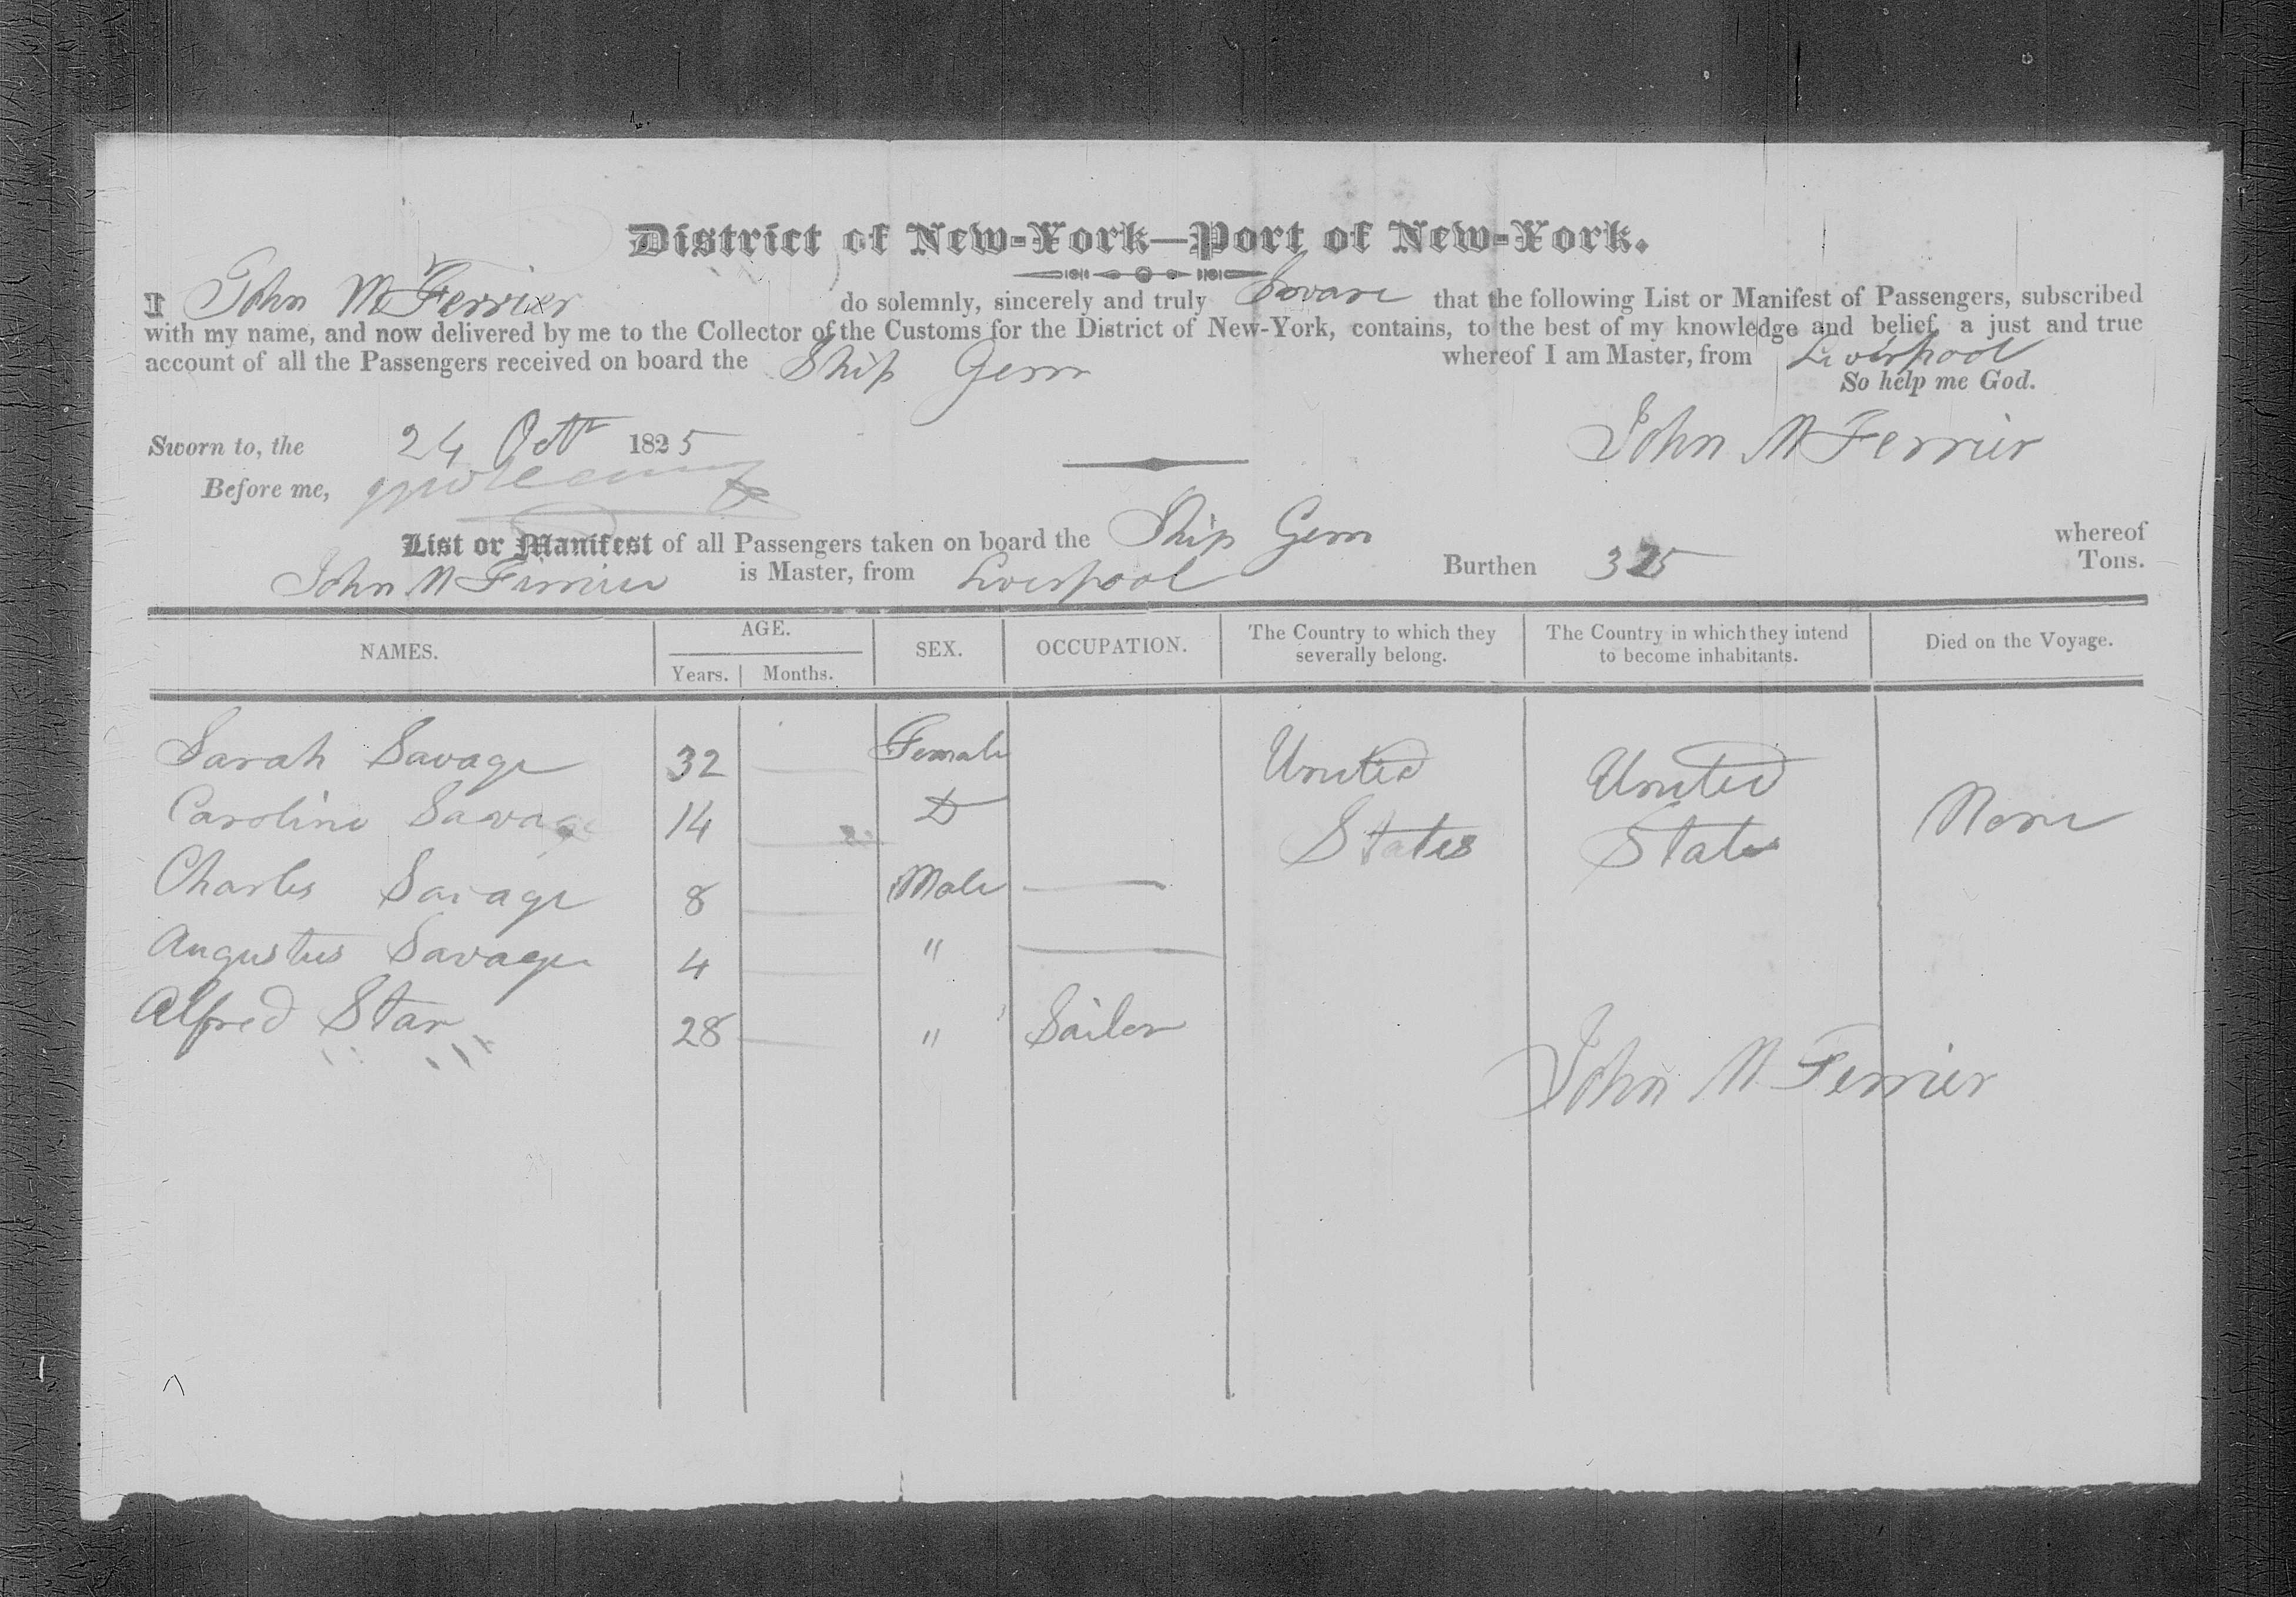 District of New-York—Port of New-York.
I John M Ferrier do solemnly, sincerely and truly Sware that the following List or Manifest of Passengers, subscribed
with my name, and now delivered by me to the Collector of the Customs for the District of New-York, contains, to the best of my knowledge and belief, a just and true
account of all the Passengers received on board the Ship Gem whereof I am Master, from Liverpool
So help me God.
Sworn to, the 24 Octr 1825 John M Ferrier
Before me,
List or Manifest of all Passengers taken on board the Ship Gem whereof
John M Ferrier is Master, from Liverpool Burthen 325 Tons.
NAMES. AGE. Years. Months. SEX. OCCUPATION. The Country to which they severally belong. The Country in which they intend to become inhabitants. Died on the Voyage.
Sarah Savage 32 — Female United States United States None
Caroline Savage 14 — Do
Charles Savage 8 — Male —
Augustus Savage 4 — " —
Alfred Star 28 — " Sailor
John M Ferrier